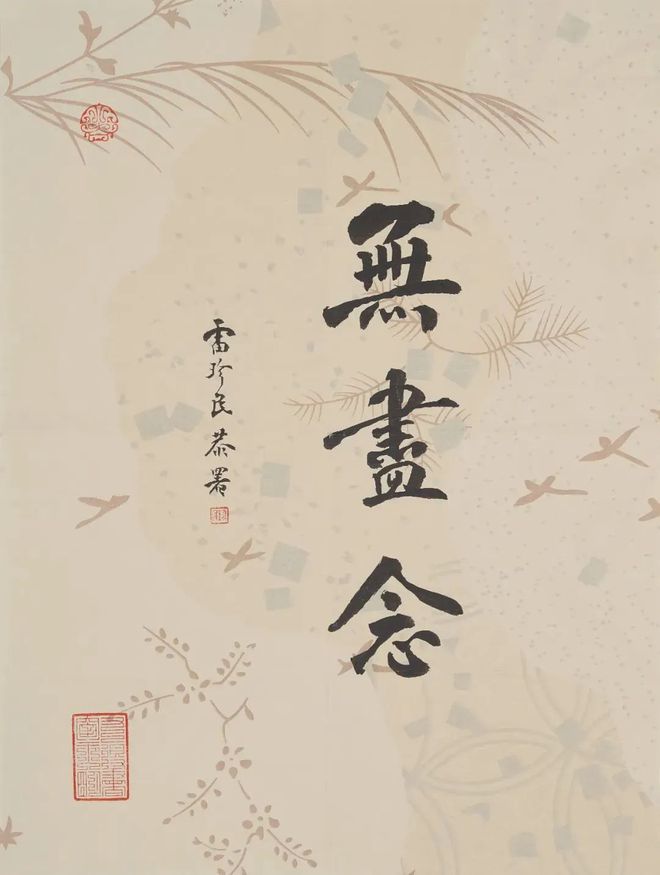 無盡念
雷珍民恭署